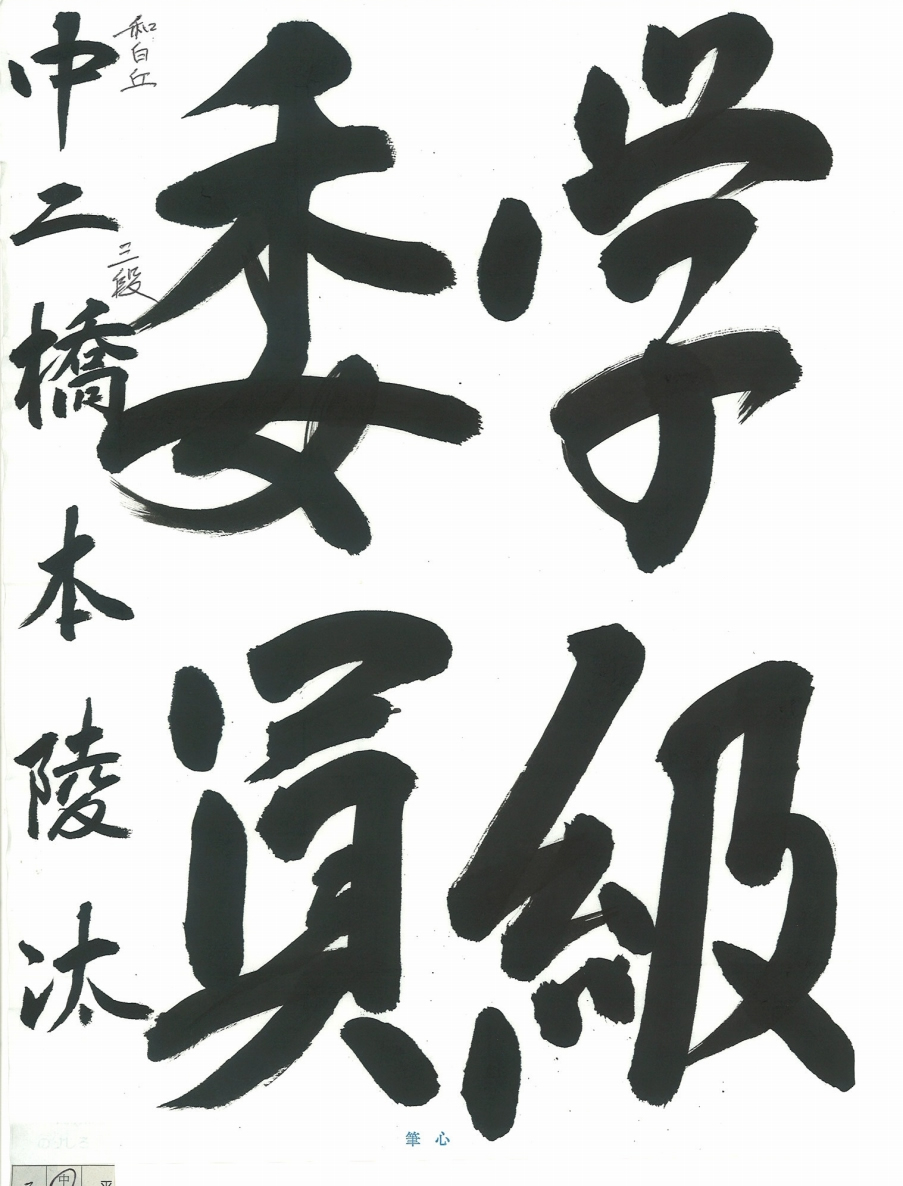 学級
委員
和白丘
三段
中二橋本陵汰
筆心
中